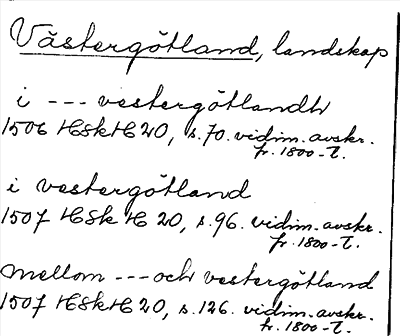 Västergötland, landskap
i --- vestergötlandh
1506 HSkH 20, s. 70. vidim. avskr.
fr. 1800-t.
i vestergötland
1507 HSkH 20, s. 96. vidim. avskr.
fr. 1800-t.
mellom --- och vestergötland
1507 HSkH 20, s. 126. vidim. avskr.
fr. 1800-t.